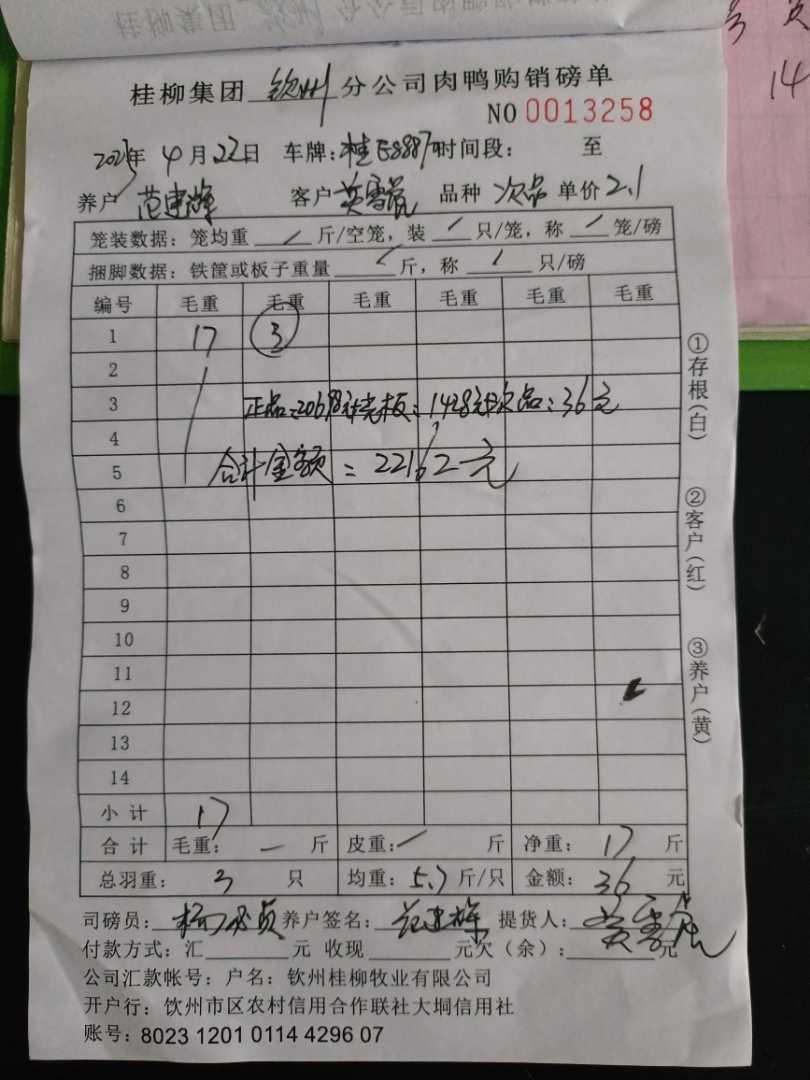 桂柳集团 钦州 分公司肉鸭购销磅单
NO 0013258
2025年 4月 22日 车牌:桂E8887 时间段: 至
养户 范建雄 客户 黄雪 品种 次品 单价 2.1
笼装数据:笼均重 / 斤/空笼,装 / 只/笼,称 / 笼/磅
捆脚数据:铁筐或板子重量 / 斤,称 / 只/磅
编号 毛重 毛重 毛重 毛重 毛重 毛重
1 17 3
2
3 正品:20698元 壳板:1428元 次品:36元
4
5 合计金额=22162元
6
7
8
9
10
11
12
13
14
小计 17
合计 毛重: — 斤 皮重: — 斤 净重: 17 斤
总羽重: 3 只 均重: 5.7 斤/只 金额: 36 元
司磅员: 杨 贞 养户签名: 范建雄 提货人: 黄雪
付款方式:汇 元 收现 元欠(余): 元
公司汇款帐号:户名:钦州桂柳牧业有限公司
开户行:钦州市区农村信用合作联社大垌信用社
账号:8023 1201 0114 4296 07
①存根(白)
②客户(红)
③养户(黄)
14